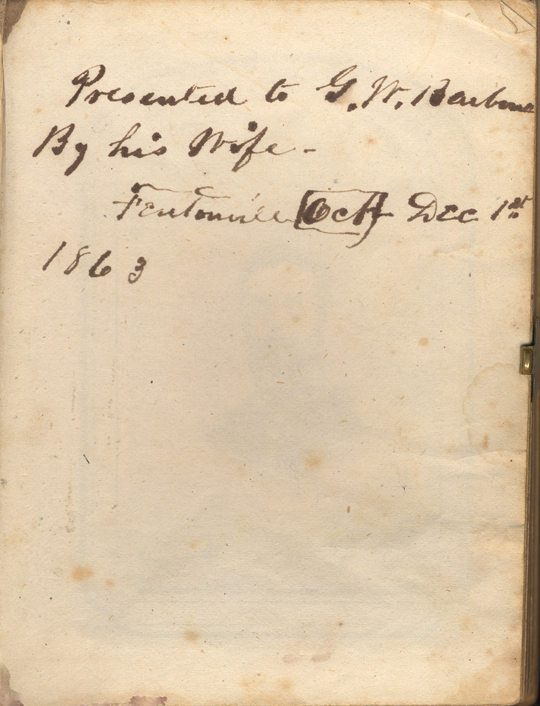 Presented to G. W. Barbour
By his Wife -
Fentonville Oct Dec 1st
1863